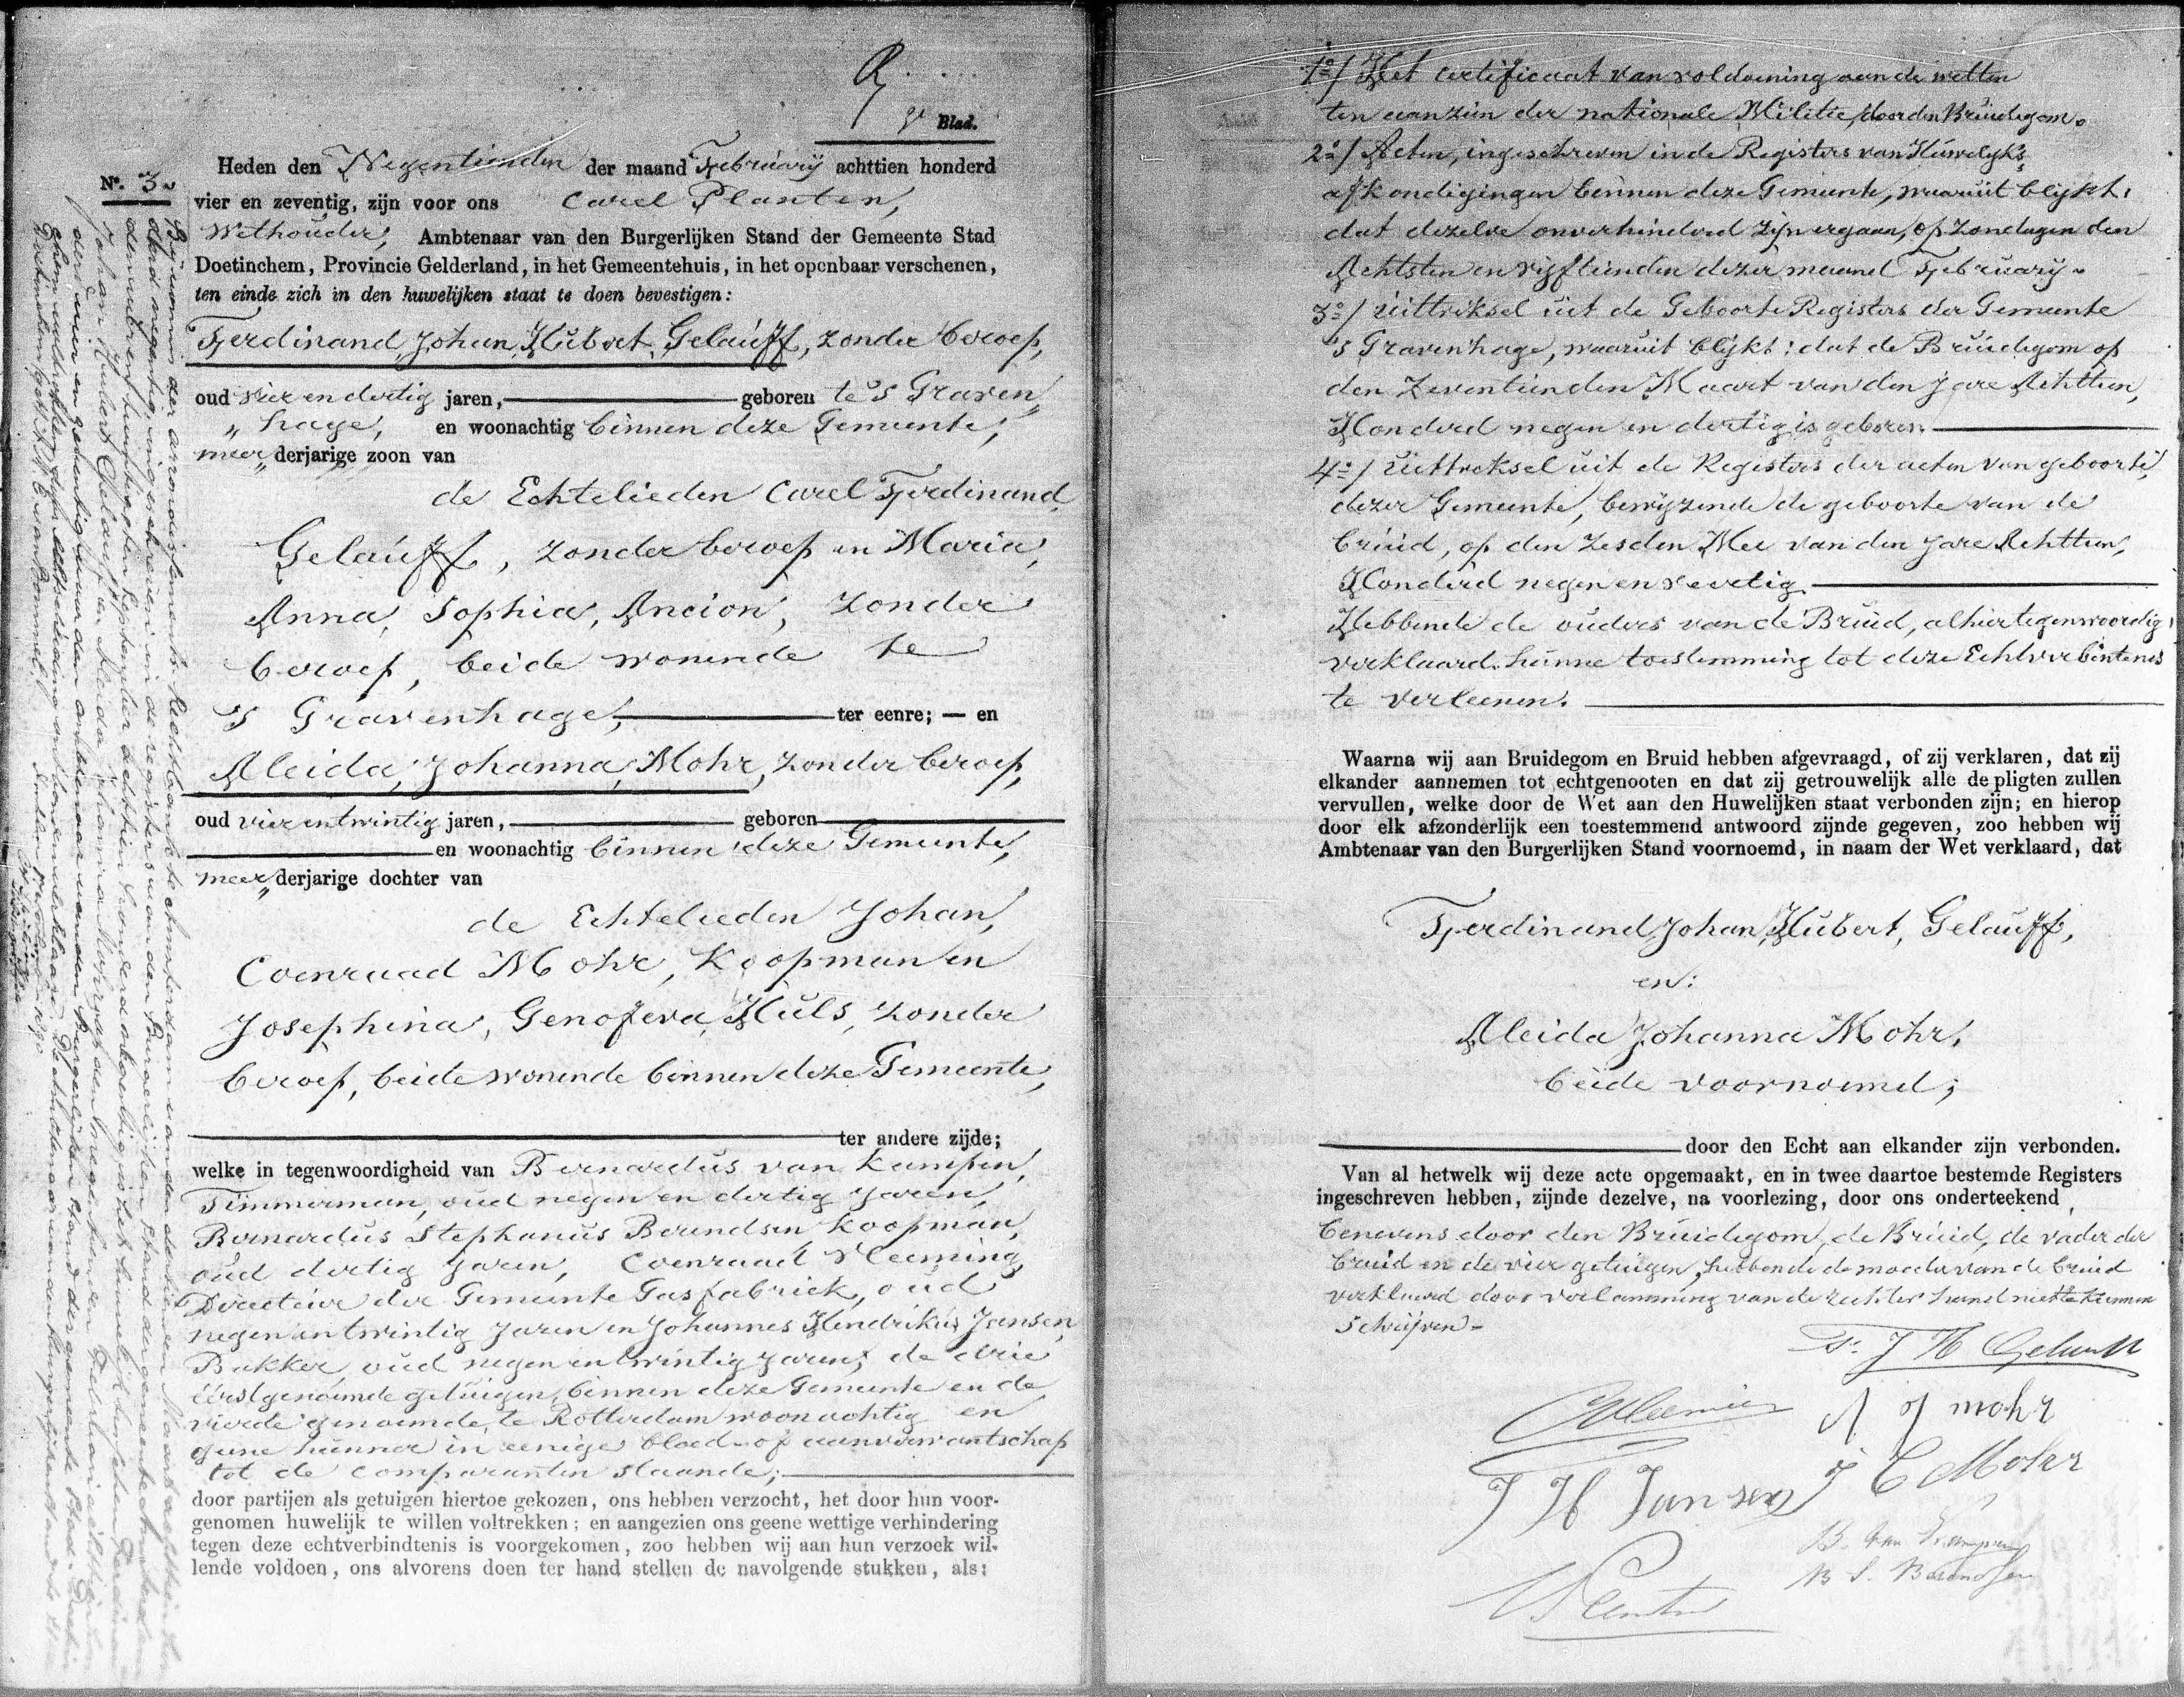 9e Blad.
No. 3.
Heden den Negentienden der maand February achttien honderd
vier en zeventig, zijn voor ons Carel Planten,
Wethouder, Ambtenaar van den Burgerlijken Stand der Gemeente Stad
Doetinchem, Provincie Gelderland, in het Gemeentehuis, in het openbaar verschenen,
ten einde zich in den huwelijken staat te doen bevestigen:
Ferdinand, Johan, Hubert, Gelauff, zonder beroep,
oud vier en dertig jaren, geboren te 's Graven„
„hage, en woonachtig binnen deze Gemeente,
meer„derjarige zoon van
de Echtelieden Carel Ferdinand
Gelauff, zonder beroep en Maria,
Anna, Sophia, Ancion, zonder
beroep, beide wonende te
's Gravenhage, ter eenre; — en
Aleida, Johanna, Mohr, zonder beroep,
oud vier en twintig jaren, geboren
en woonachtig binnen deze Gemeente,
meer„derjarige dochter van
de Echtelieden Johan,
Coenraad Mohr, Koopman en
Josephina, Genofeva, Huls, zonder
beroep, beide wonende binnen deze Gemeente,
ter andere zijde;
welke in tegenwoordigheid van Bernardus van Kampen,
Timmerman, oud negen en dertig jaren,
Bernardus Stephanus Berendsen, Koopman,
oud dertig jaren, Coenraad Vleeming
Directeur der Gemeente Gasfabriek, oud
negen en twintig jaren en Johannes Hendrikus Jansen
Bakker, oud negen en twintig jaren, de drie
eerstgenoemde getuigen, binnen deze Gemeente en de
vierde genoemde, te Rotterdam woonachtig en
geene hunner in eenige bloed- of aanverwantschap
tot de comparanten staande;
door partijen als getuigen hiertoe gekozen, ons hebben verzocht, het door hun voor-
genomen huwelijk te willen voltrekken; en aangezien ons geene wettige verhindering
tegen deze echtverbindtenis is voorgekomen, zoo hebben wij aan hun verzoek wil-
lende voldoen, ons alvorens doen ter hand stellen de navolgende stukken, als:
1o/ Het certificaat van voldoening aan de wetten
ten aanzien der nationale Militie, door den Bruidegom.
2o/ Acten, ingeschreven in de Registers van Huwelijks
afkondigingen binnen deze Gemeente, waaruit blijkt,
dat dezelve onverhinderd zijn ergaan, op Zondagen den
Achtsten en vijftienden dezer maand February.
3o/ Uittreksel uit de Geboorte Registers der Gemeente
's Gravenhage, waaruit blijkt: dat de Bruidegom op
den Zeventienden Maart van den jare Achttien,
Honderd negen en dertig is geboren.
4o/ Uittreksel uit de Registers der acten van geboorte,
dezer Gemeente, bewijzende de geboorte van de
bruid, op den zesden Mei van den jare Achttien,
Honderd negen en veertig
Hebbende de ouders van de Bruid, alhier tegenwoordig,
verklaard hunne toestemming tot deze Echtverbintenis
te verleenen.
Waarna wij aan Bruidegom en Bruid hebben afgevraagd, of zij verklaren, dat zij
elkander aannemen tot echtgenooten en dat zij getrouwelijk alle de pligten zullen
vervullen, welke door de Wet aan den Huwelijken staat verbonden zijn; en hierop
door elk afzonderlijk een toestemmend antwoord zijnde gegeven, zoo hebben wij
Ambtenaar van den Burgerlijken Stand voornoemd, in naam der Wet verklaard, dat
Ferdinand, Johan, Hubert, Gelauff,
en:
Aleida Johanna Mohr,
beide voornoemd;
door den Echt aan elkander zijn verbonden.
Van al hetwelk wij deze acte opgemaakt, en in twee daartoe bestemde Registers
ingeschreven hebben, zijnde dezelve, na voorlezing, door ons onderteekend
benevens door den Bruidegom, de Bruid, de vader der
bruid en de vier getuigen, hebbende de moeder van de bruid
verklaard door verlamming van de rechter hand niet te kunnen
schrijven.
F. J H Gelauff
CVleeming
A J mohr
J H Jansen
J C Mohr
B. van Kampen
B S. Berendsen
Planten